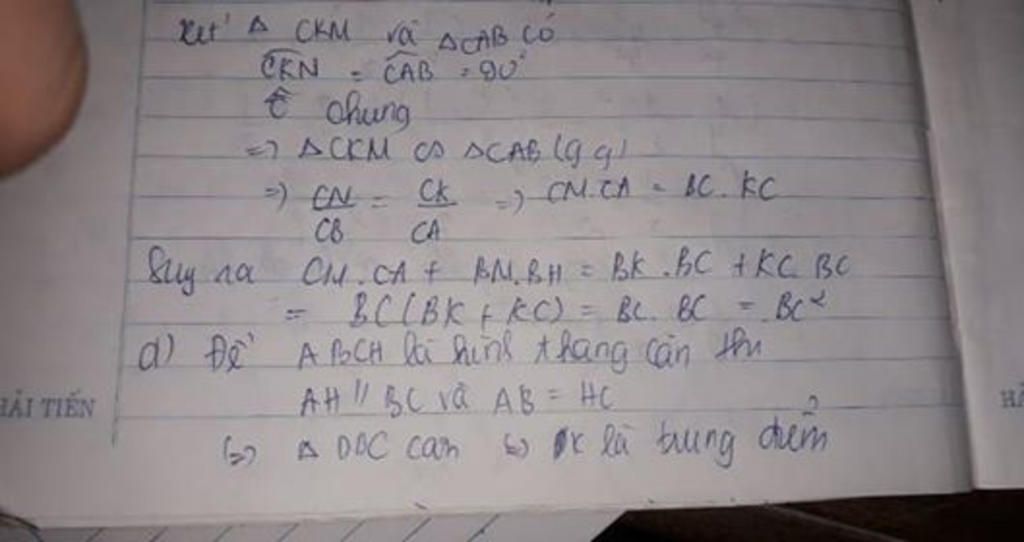 Xét Δ CKM và ΔCAB có
CKN = CAB = 90°
Ĉ chung
=> ΔCKM ∽ ΔCAB (g g)
=> CM/CB = CK/CA => CM.CA = BC.KC
Suy ra CM.CA + BM.BH = BK.BC + KC BC
= BC(BK + KC) = BC.BC = BC²
d) Để ABCH là hình thang cân thì
AH // BC và AB = HC
HẢI TIẾN
HẢ
<=> Δ DBC can <=> K là trung điểm